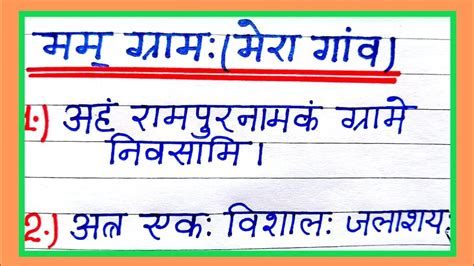 मम् ग्रामः (मेरा गांव)
1.) अहं रामपुरनामकं ग्रामे
निवसामि।
2.) अत्र एकः विशालः जलाशयः